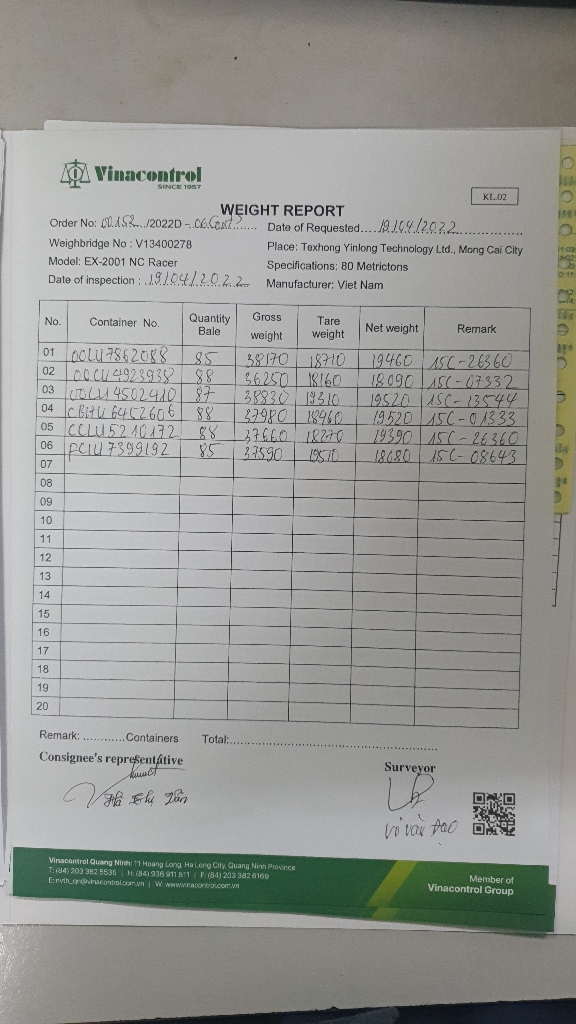 Vinacontrol
SINCE 1957
KL.02
WEIGHT REPORT
Order No: 00152 /2022D - 06 Cont? Date of Requested....19/04/2022
Weighbridge No : V13400278 Place: Texhong Yinlong Technology Ltd., Mong Cai City
Model: EX-2001 NC Racer Specifications: 80 Metrictons
Date of inspection : 19/04/2022 Manufacturer: Viet Nam
No. Container No. Quantity Bale Gross weight Tare weight Net weight Remark
01 OOLU7862088 85 38170 18710 19460 15C-26360
02 OOCU4923938 88 36250 18160 18090 15C-07332
03 OOLU4502410 87 38830 19310 19520 15C-13544
04 CBHU6452606 88 37980 18460 19520 15C-01333
05 CCLU5210172 88 37660 18270 19390 15C-26360
06 FCIU7399192 85 37590 19510 18080 15C-08643
07
08
09
10
11
12
13
14
15
16
17
18
19
20
Remark: ............Containers Total:..........................................................
Consignee's representative Surveyor
Hà Thị Dần
Vi Văn Đạo
Vinacontrol Quang Ninh: 11 Hoang Long, Ha Long City, Quang Ninh Province
T: (84) 203 382 5535 | H: (84) 936 911 811 | F: (84) 203 382 6169
E: nvth_qn@vinacontrol.com.vn | W: www.vinacontrol.com.vn
Member of
Vinacontrol Group